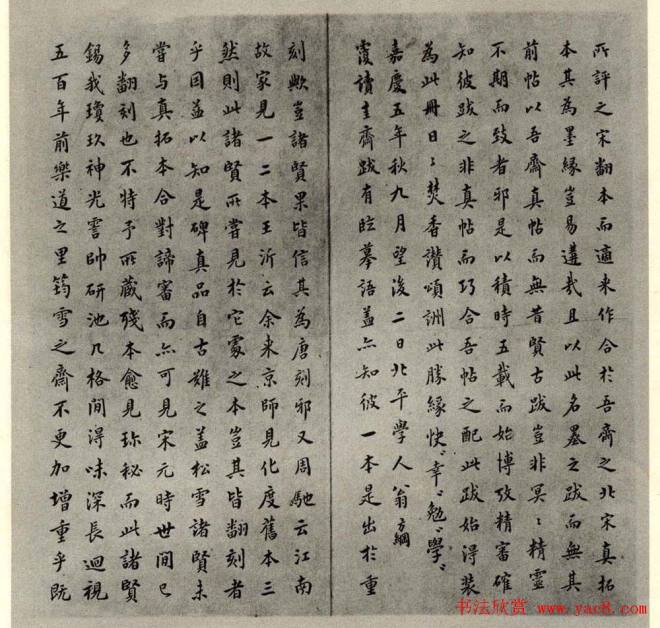 所評之宋翻本而適来作合於吾齋之北宋真拓
本其為墨緣豈易遘哉且以此名墨之跋而無其
前帖以吾齋真帖而無昔賢古跋豈非冥〻精靈
不期而致者邪是以積時五載而始博攷精審確
知彼跋之非真帖而巧合吾帖之配此跋始得裝
為此冊日〻焚香讚頌詶此勝緣快〻幸〻勉〻學〻
嘉慶五年秋九月望後二日北平學人翁方綱
覆讀圭齋跋有臨摹語蓋亦知彼一本是出於重
刻歟豈諸賢果皆信其為唐刻邪又周馳云江南
故家見一二本王沂云余来京師見化度舊本三
然則此諸賢所嘗見於它處之本豈其皆翻刻者
乎因益以知是碑真品自古難之蓋松雪諸賢未
嘗与真拓本合對諦審而亦可見宋元時世間已
多翻刻也不特予所藏殘本愈見珎秘而此諸賢
錫我瓊玖神光霅帥研池几格間得味深長迴視
五百年前樂道之里筠雪之齋不更加增重乎既
书法欣赏 www.yac8.com